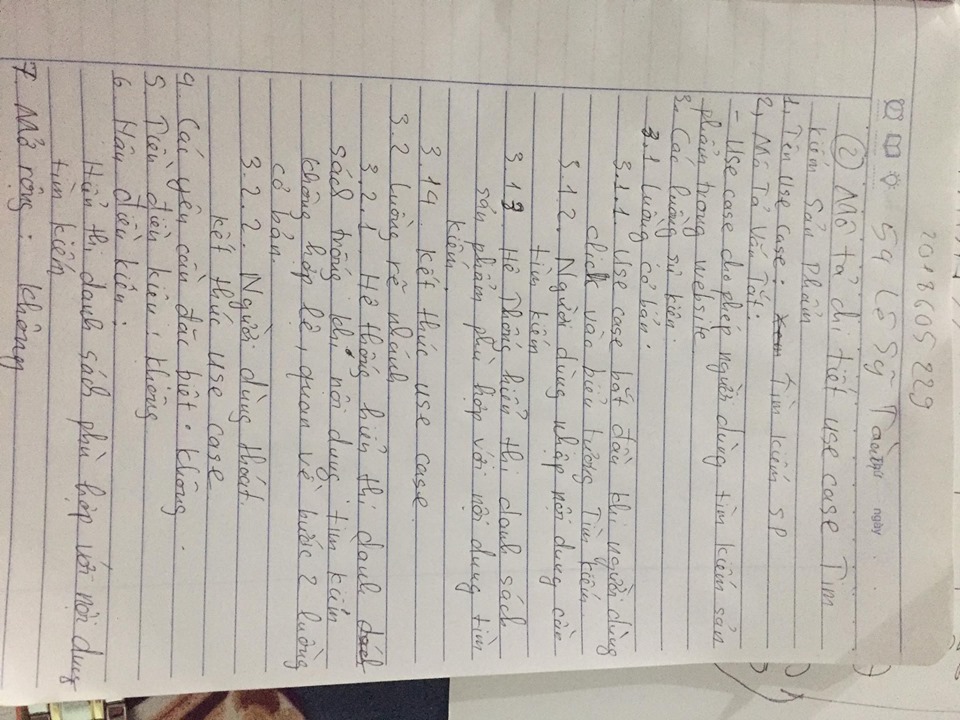 2018605229
59 Lê Sỹ Tàu
ngày
② Mô tả chi tiết use case Tìm
kiếm sản phẩm
1, Tên use case: Tìm kiếm SP
2, Mô Tả Vắn Tắt:
- Use case cho phép người dùng tìm kiếm sản
phẩm trong website
3. Các luồng sự kiện
3.1 Luồng cơ bản:
3.1.1 Use case bắt đầu khi người dùng
click vào biểu tượng Tìm kiếm
3.1.2. Người dùng nhập nội dung cần
tìm kiếm
3.1.3. Hệ thống hiển thị danh sách
sản phẩm phù hợp với nội dung tìm
kiếm.
3.1.4. kết thúc use case.
3.2 Luồng rẽ nhánh
3.2.1. Hệ thống hiển thị danh
sách trống khi nội dung tìm kiếm
không hợp lệ, quan về bước 2 luồng
cơ bản.
3.2.2. Người dùng thoát.
kết thúc use case
4. Các yêu cầu đặc biệt: không.
5 Tiền điều kiện: không
6 Hậu điều kiện:
Hiển thị danh sách phù hợp với nội dung
tìm kiếm
7 Mở rộng: không